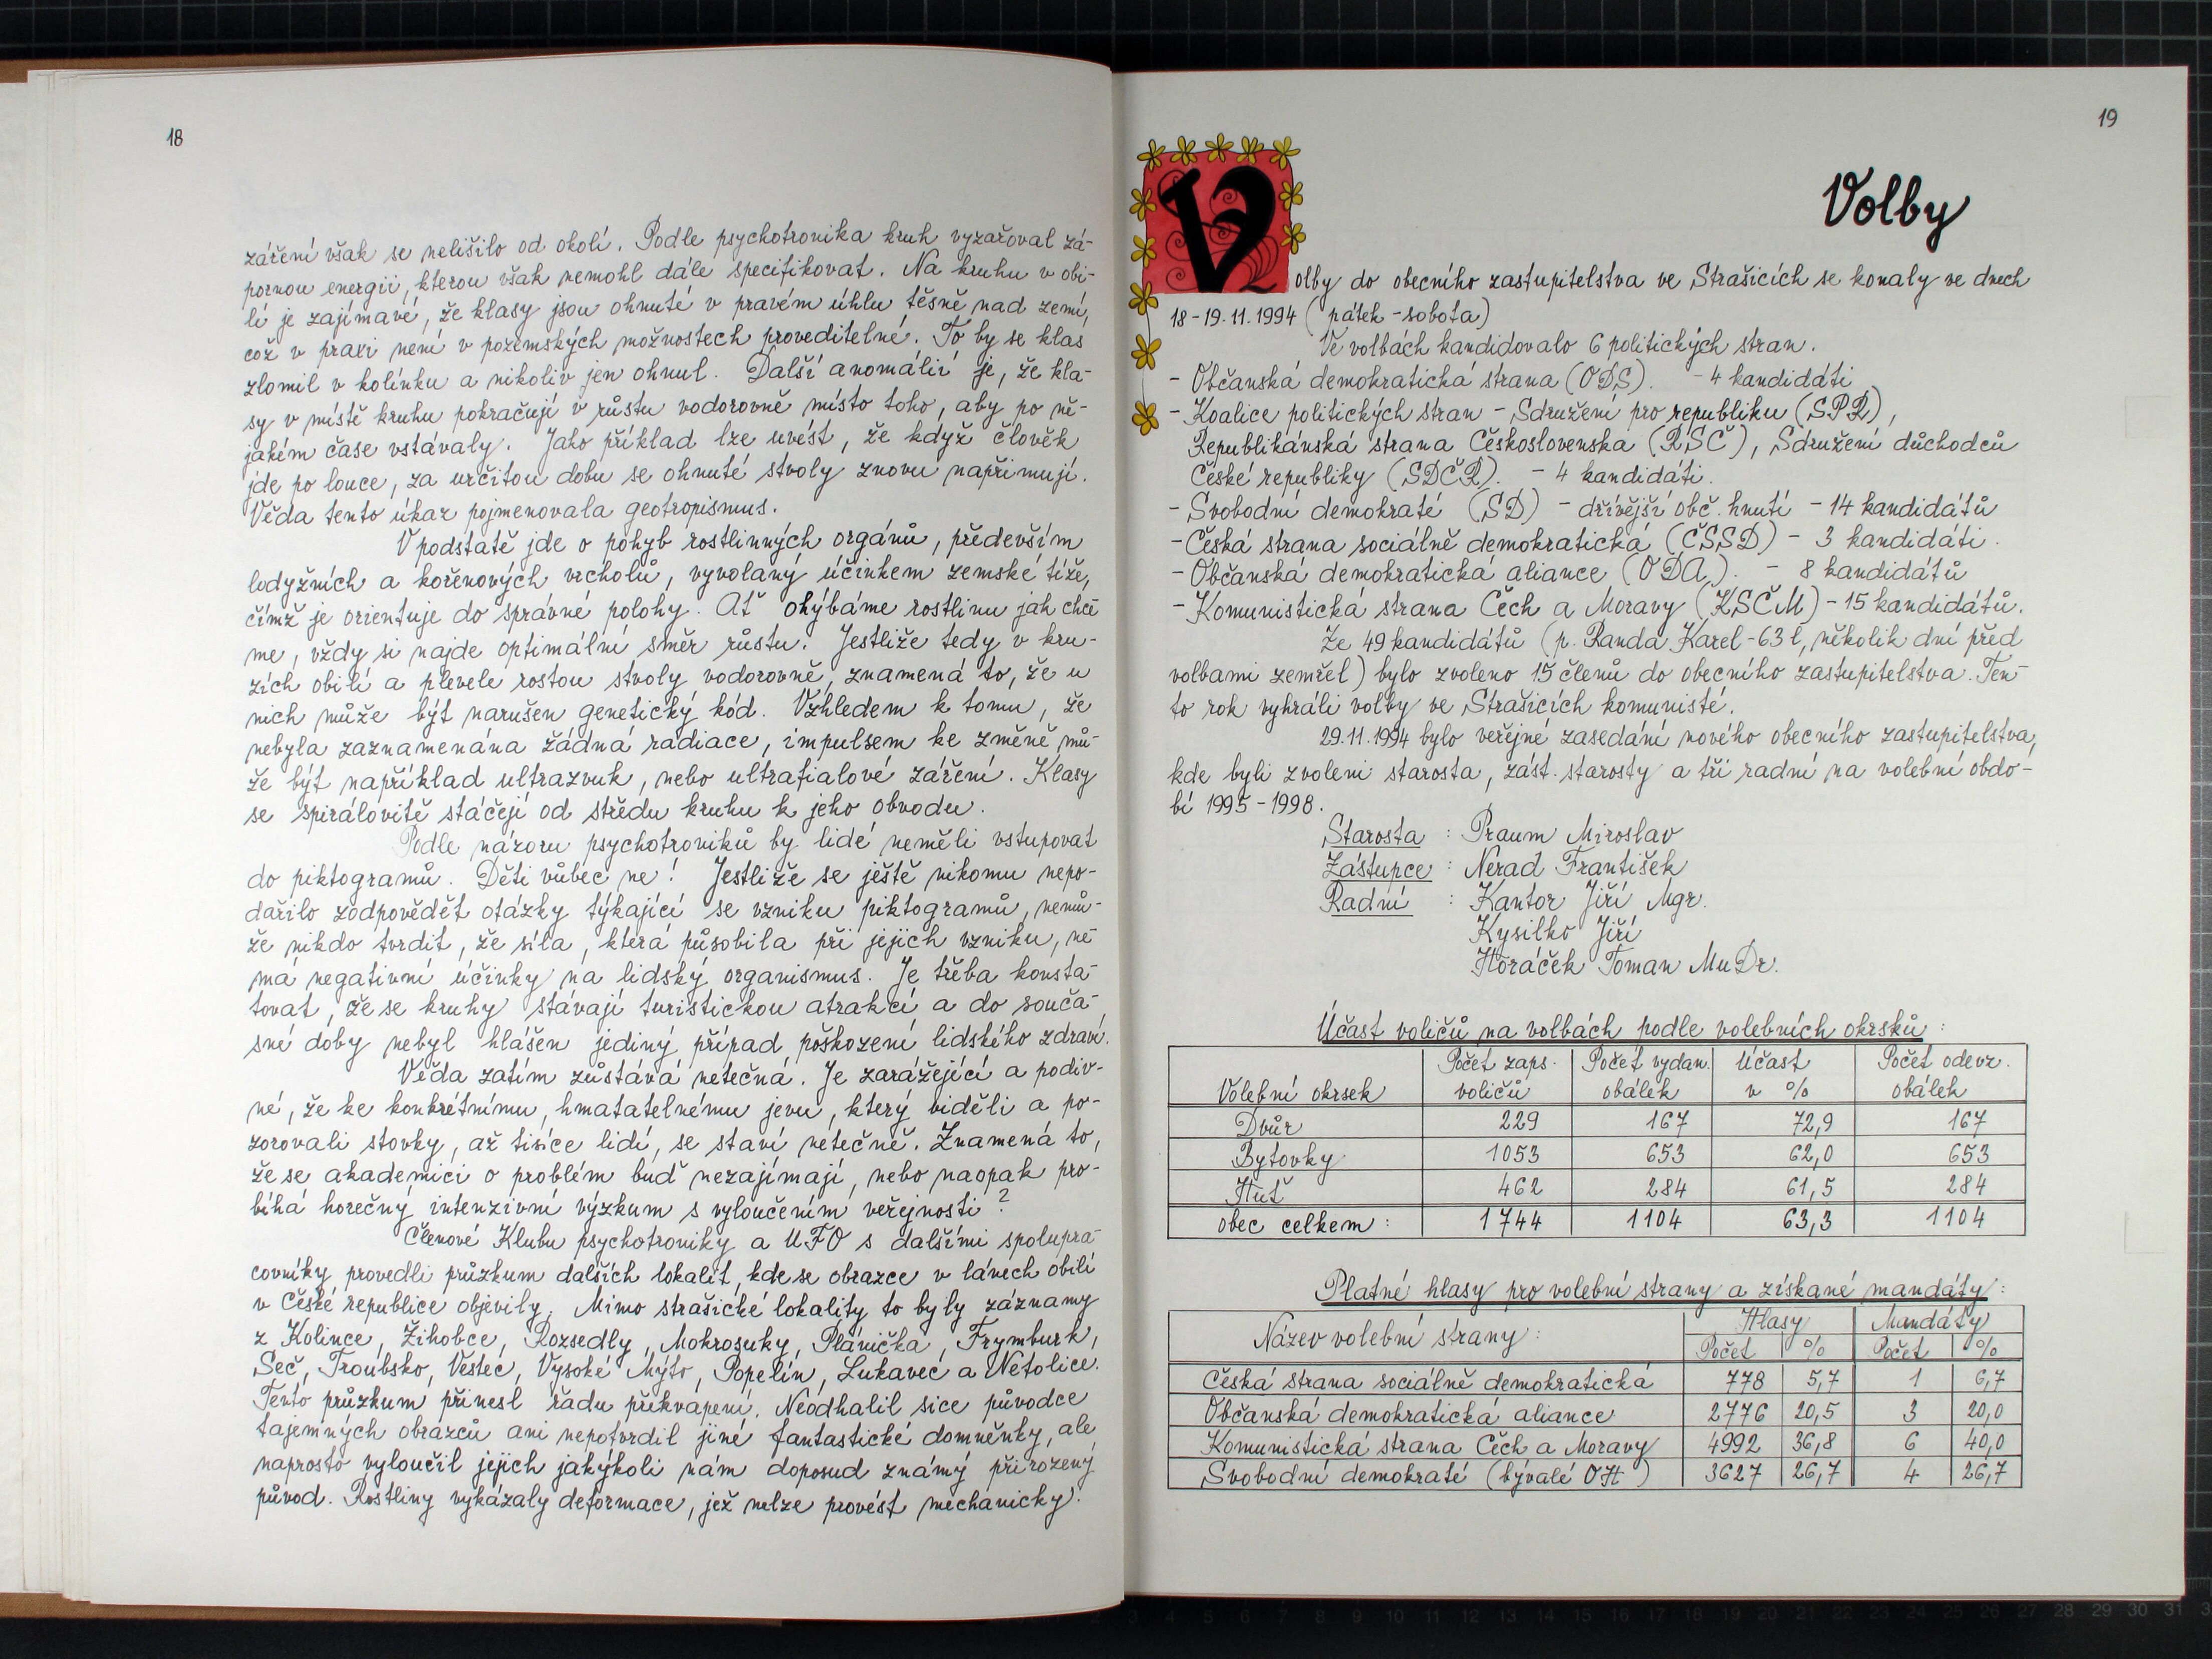 18
záření však se nelišilo od okolí. Podle psychotronika kruh vyzařoval zá-
pornou energii, kterou však nemohl dále specifikovat. Na kruhu v obi-
lí je zajímavé, že klasy jsou ohnuté v pravém úhlu těsně nad zemí,
což v praxi není v pozemských možnostech proveditelné. To by se klas
zlomil v kolínku a nikoliv jen ohnul. Další anomálií je, že kla-
sy v místě kruhu pokračují v růstu vodorovně místo toho, aby po ně-
jakém čase vstávaly. Jako příklad lze uvést, že když člověk
jde po louce, za určitou dobu se ohnuté stvoly znovu napřimují.
Věda tento úkaz pojmenovala geotropismus.
V podstatě jde o pohyb rostlinných orgánů, především
lodyžních a kořenových vrcholů, vyvolaný účinkem zemské tíže,
čímž je orientuje do správné polohy. Ať ohýbáme rostlinu jak chce
me, vždy si najde optimální směr růstu. Jestliže tedy v kru-
zích obilí a plevele rostou stvoly vodorovně, znamená to, že u
nich může být narušen genetický kód. Vzhledem k tomu, že
nebyla zaznamenána žádná radiace, impulsem ke změně mů-
že být například ultrazvuk, nebo ultrafialové záření. Klasy
se spirálovitě stáčejí od středu kruhu k jeho obvodu.
Podle názoru psychotroniků by lidé neměli vstupovat
do piktogramů. Děti vůbec ne! Jestliže se ještě nikomu nepo-
dařilo zodpovědět otázky týkající se vzniku piktogramů, nemů-
že nikdo tvrdit, že síla, která působila při jejich vzniku, ne-
má negativní účinky na lidský organismus. Je třeba konsta-
tovat, že se kruhy stávají turistickou atrakcí a do souča-
sné doby nebyl hlášen jediný případ poškození lidského zdraví.
Věda zatím zůstává netečná. Je zarážející a podiv-
né, že ke konkrétnímu, hmatatelnému jevu, který viděli a po-
zorovali stovky, až tisíce lidí, se staví netečně. Znamená to,
že se akademici o problém buď nezajímají, nebo naopak pro-
bíhá horečný intenzivní výzkum s vyloučením veřejnosti?
Členové Klubu psychotroniky a UFO s dalšími spolupra-
covníky provedli průzkum dalších lokalit, kde se obrazce v lánech obilí
v České republice objevily. Mimo strašické lokality to byly záznamy
z Kolince, Žihobce, Rozsedly, Mokrosuky, Plánička, Frymburk,
Seč, Troubsko, Vestec, Vysoké Mýto, Popelín, Lukavec a Netolice.
Tento průzkum přinesl řadu překvapení. Neodhalil sice původce
tajemných obrazců ani nepotvrdil jiné fantastické domněnky, ale
naprosto vyloučil jejich jakýkoli nám doposud známý přirozený
původ. Rostliny vykázaly deformace, jež nelze provést mechanicky.
19
Volby
Volby do obecního zastupitelstva ve Strašicích se konaly ve dnech
18-19.11.1994 (pátek-sobota)
Ve volbách kandidovalo 6 politických stran.
- Občanská demokratická strana (ODS). - 4 kandidáti
- Koalice politických stran - Sdružení pro republiku (SPR),
Republikánská strana Československa (RSČ), Sdružení důchodců
České republiky (SDČR). - 4 kandidáti.
- Svobodní demokraté (SD) - dřívější obč. hnutí - 14 kandidátů
- Česká strana sociálně demokratická (ČSSD) - 3 kandidáti.
- Občanská demokratická aliance (ODA). - 8 kandidátů
- Komunistická strana Čech a Moravy (KSČM) - 15 kandidátů.
Ze 49 kandidátů (p. Randa Karel-63 l, několik dní před
volbami zemřel) bylo zvoleno 15 členů do obecního zastupitelstva. Ten-
to rok vyhráli volby ve Strašicích komunisté.
29.11.1994 bylo veřejné zasedání nového obecního zastupitelstva,
kde byli zvoleni starosta, zást. starosty a tři radní na volební obdo-
bí 1995-1998.
Starosta : Praum Miroslav
Zástupce : Nerad František
Radní : Kantor Jiří Mgr.
Kysilko Jiří
Horáček Toman MuDr.
Účast voličů na volbách podle volebních okrsků :
Volební okrsek Počet zaps. voličů Počet vydan. obálek Účast v % Počet odevz. obálek
Dvůr 229 167 72,9 167
Bytovky 1053 653 62,0 653
Huť 462 284 61,5 284
obec celkem : 1744 1104 63,3 1104
Platné hlasy pro volební strany a získané mandáty :
Název volební strany : Hlasy Mandáty
Počet % Počet %
Česká strana sociálně demokratická 778 5,7 1 6,7
Občanská demokratická aliance 2776 20,5 3 20,0
Komunistická strana Čech a Moravy 4992 36,8 6 40,0
Svobodní demokraté (bývalé OH) 3627 26,7 4 26,7